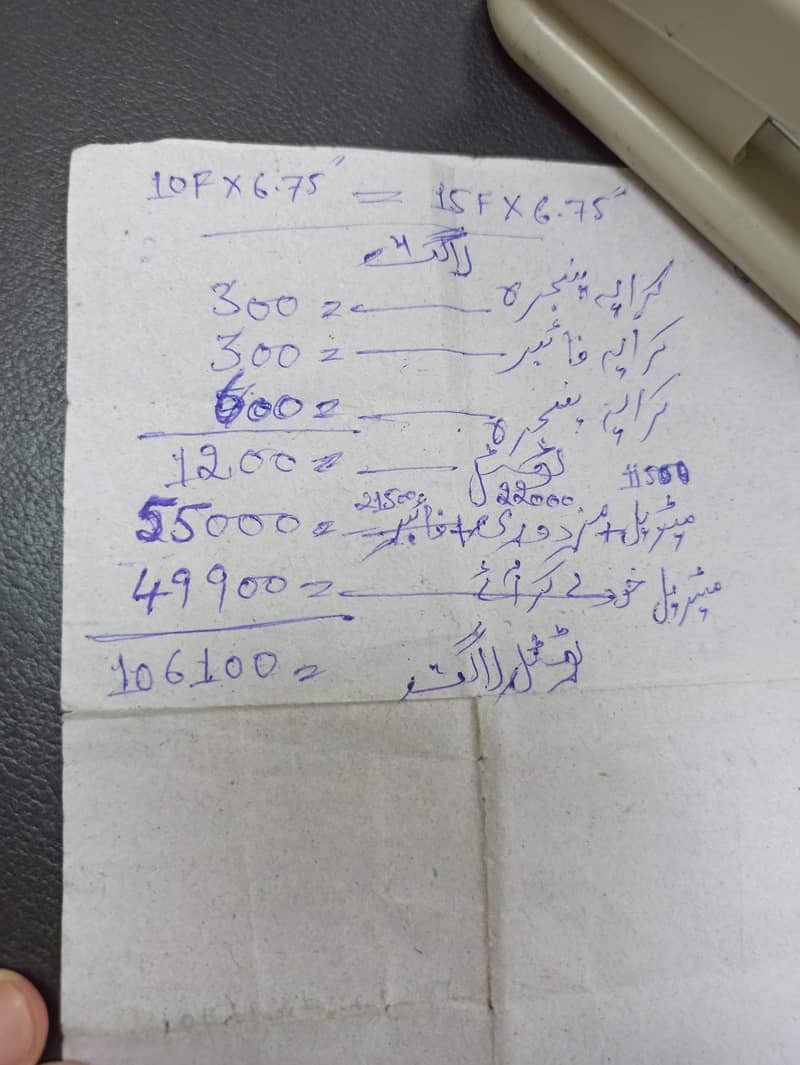 10F X 6.75" = 15F X 6.75"
لاگت
کرایہ پنجرہ — 300 =
کرایہ فائبر — 300 =
کرایہ پنجرہ — 600 =
ٹوٹل — 1200 =
21500 22000 11500
میٹریل + مزدوری + فائبر — 55000 =
میٹریل خود لے کر آئے — 49900 =
ٹوٹل لاگت 106100 =